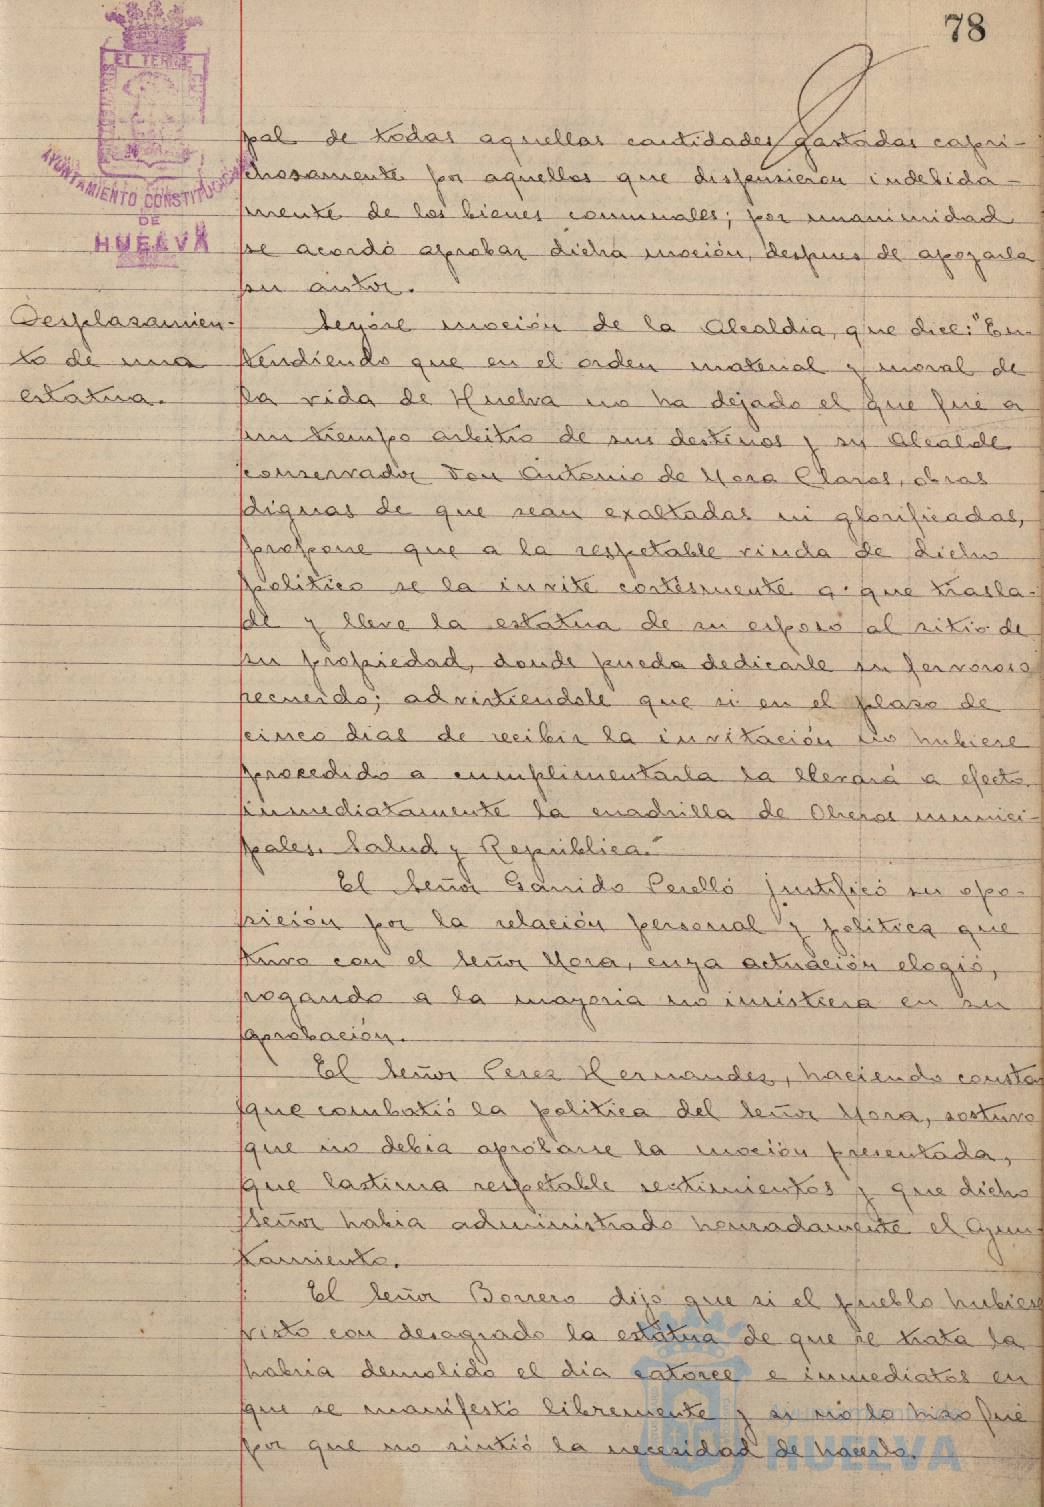 78
ET TERRE
AYUNTAMIENTO CONSTITUCIONAL
DE
HUELVA
pal de todas aquellas cantidades gastadas capri-
chosamente por aquellos que dispusieron indebida-
mente de los bienes comunales; por unanimidad
se acordó aprobar dicha moción, despues de apoyarla
su autor.
Desplasamien-
to de una
estatua.
Leyóse moción de la Alcaldia, que dice: "En-
tendiendo que en el orden material y moral de
la vida de Huelva no ha dejado el que fué a
un tiempo arbitro de sus destinos y su Alcalde
conservador Don Antonio de Mora Claros, obras
dignas de que sean exaltadas ni glorificadas,
propone que a la respetable viuda de dicho
politico se la invite cortésmente a que trasla-
de y lleve la estatua de su esposo al sitio de
su propiedad, donde pueda dedicarle su fervoroso
recuerdo; advirtiendole que si en el plaso de
cinco dias de recibir la invitación no hubiese
procedido a cumplimentarla la llevará a efecto
inmediatamente la cuadrilla de Obreros munici-
pales. Salud y República."
El Señor Garrido Perelló justificó su opo-
sición por la relación personal y politica que
tuvo con el Señor Mora, cuya actuación elogió,
rogando a la mayoria no insistiera en su
aprobación.
El Señor Perez Hernandez, haciendo constar
que combatió la politica del Señor Mora, sostuvo
que no debia aprobarse la moción presentada,
que lastima respetable sentimientos y que dicho
Señor habia administrado honradamente el Ayun-
tamiento.
El Señor Borrero dijo que si el pueblo hubiese
visto con desagrado la estátua de que se trata la
habria demolido el dia catorce e inmediatos en
que se manifestó libremente y si nó lo hiso fué
por que no sintió la necesidad de hacerlo.
Ayuntamiento de
HUELVA